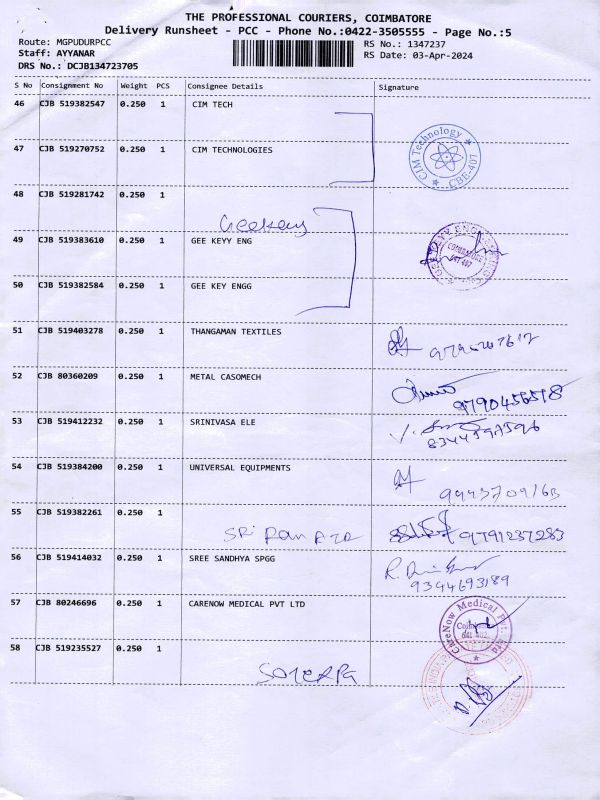 THE PROFESSIONAL COURIERS, COIMBATORE
Delivery Runsheet - PCC - Phone No.:0422-3505555 - Page No.:5
Route: MGPUDURPCC
RS No.: 1347237
Staff: AYYANAR
RS Date: 03-Apr-2024
DRS No.: DCJB134723705
S No Consignment No Weight PCS Consignee Details Signature
46 CJB 519382547 0.250 1 CIM TECH
47 CJB 519270752 0.250 1 CIM TECHNOLOGIES
CIM Technology CBE-407
48 CJB 519281742 0.250 1
Geekeey
49 CJB 519383610 0.250 1 GEE KEYY ENG
50 CJB 519382584 0.250 1 GEE KEY ENGG
51 CJB 519403278 0.250 1 THANGAMAN TEXTILES
52 CJB 80360209 0.250 1 METAL CASOMECH
9790456518
53 CJB 519412232 0.250 1 SRINIVASA ELE
54 CJB 519384200 0.250 1 UNIVERSAL EQUIPMENTS
55 CJB 519382261 0.250 1
SRI
56 CJB 519414032 0.250 1 SREE SANDHYA SPGG
9344693189
57 CJB 80246696 0.250 1 CARENOW MEDICAL PVT LTD
CareNow Medical Pvt. Ltd
58 CJB 519235527 0.250 1